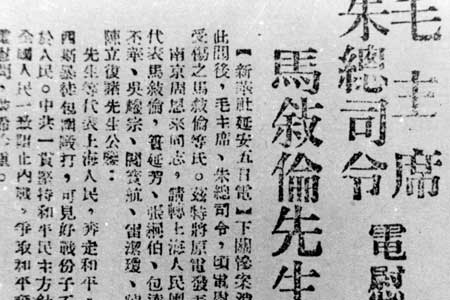 毛主席
朱總司令
電慰
馬敘倫先生
【新華社延安五日電】下關慘案
此間後,毛主席、朱總司令,頃電慰
受傷之馬敘倫等氏。茲特將原電發
南京周恩來同志,請轉上海人民
代表馬敘倫,簣延芳、張絅伯、包
丕華、吳耀宗、閻寶航、雷潔瓊、
陳立復諸先生公鑒:
先生等代表上海人民,奔走和平,
西斯暴徒包圍毆打,可見好戰份子不
於人民。中共一貫堅持和平民主方針
全國人民一致阻止內戰,爭取和平
電慰問,